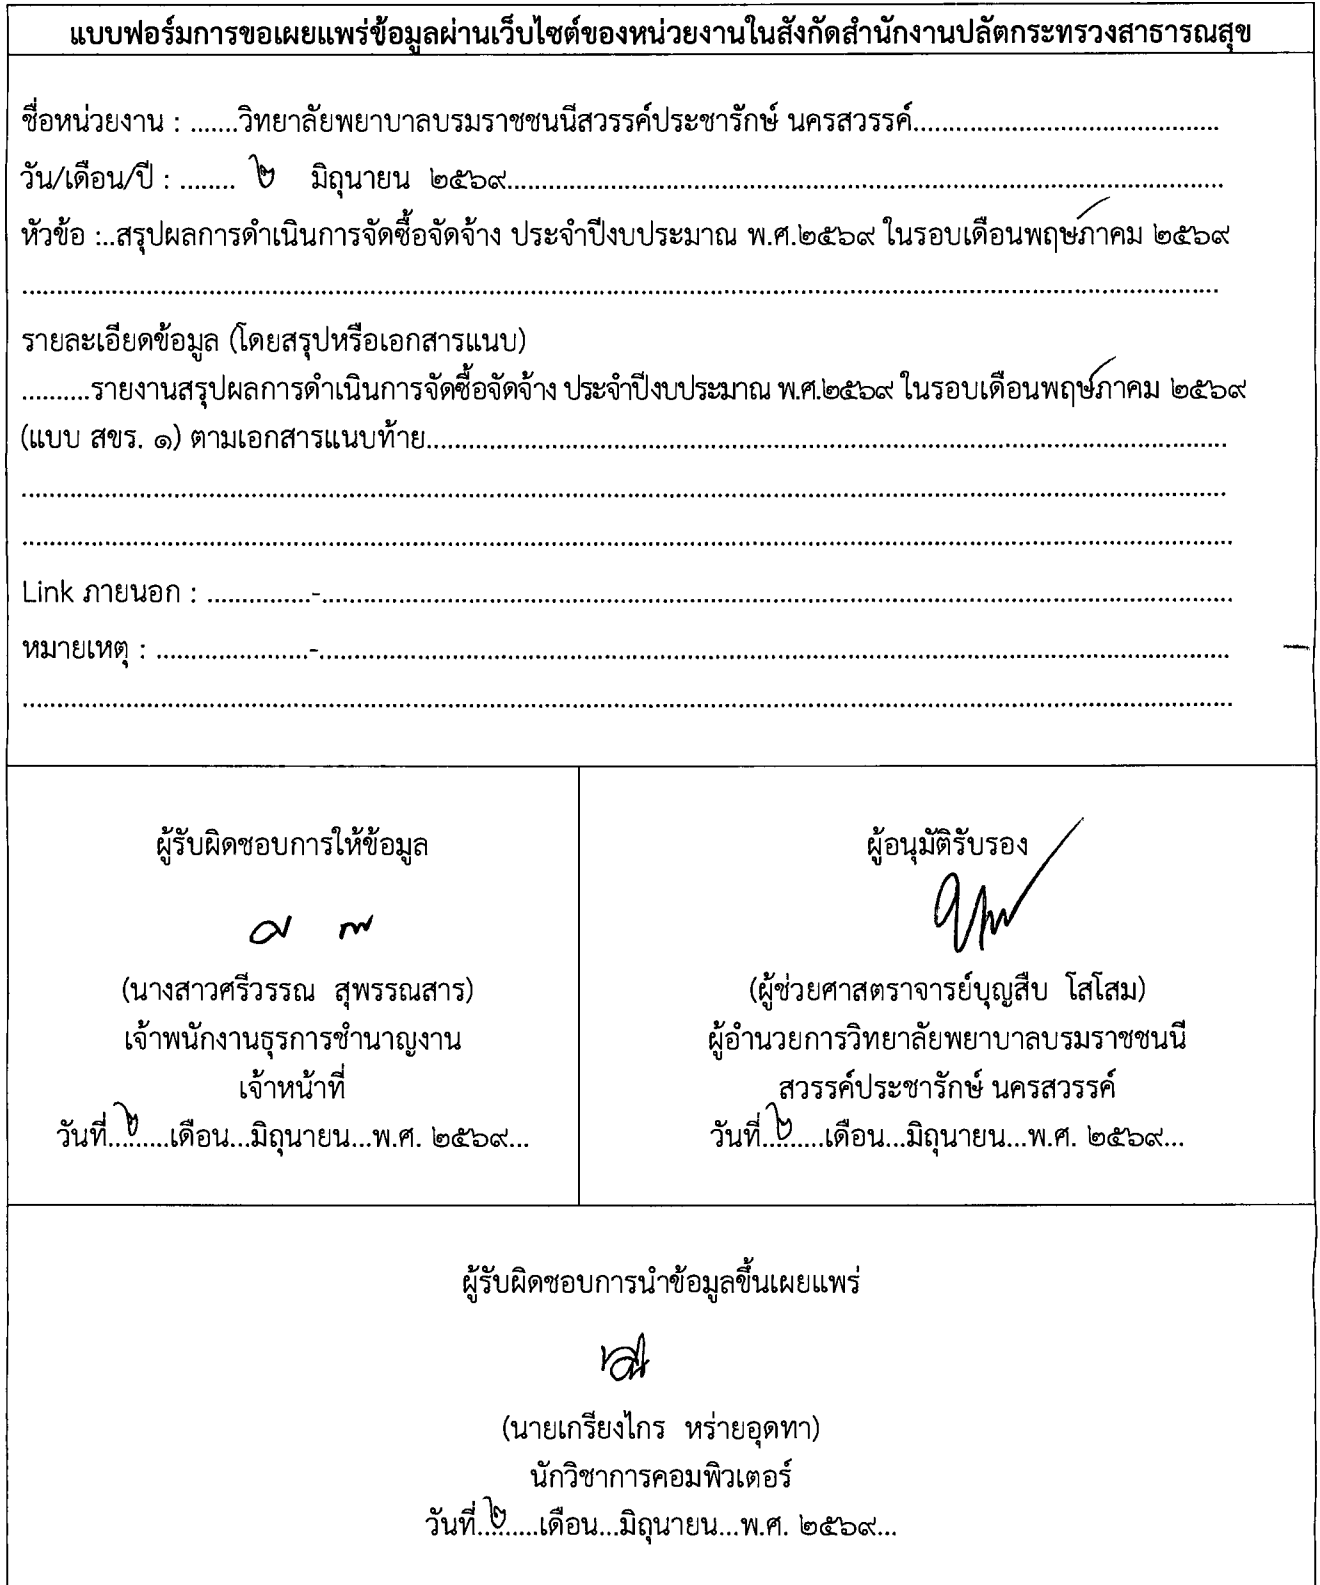 แบบฟอร์มการขอเผยแพร่ข้อมูลผ่านเว็บไซต์ของหน่วยงานในสังกัดสำนักงานปลัดกระทรวงสาธารณสุข
ชื่อหน่วยงาน : .......วิทยาลัยพยาบาลบรมราชชนนีสวรรค์ประชารักษ์ นครสวรรค์............................................
วัน/เดือน/ปี : ........ ๒ มิถุนายน ๒๕๖๙............................................
หัวข้อ :..สรุปผลการดำเนินการจัดซื้อจัดจ้าง ประจำปีงบประมาณ พ.ศ.๒๕๖๙ ในรอบเดือนพฤษภาคม ๒๕๖๙
รายละเอียดข้อมูล (โดยสรุปหรือเอกสารแนบ)
..........รายงานสรุปผลการดำเนินการจัดซื้อจัดจ้าง ประจำปีงบประมาณ พ.ศ.๒๕๖๙ ในรอบเดือนพฤษภาคม ๒๕๖๙
(แบบ สขร. ๑) ตามเอกสารแนบท้าย............................................
Link ภายนอก : ...............-............................................
หมายเหตุ : ......................-............................................
ผู้รับผิดชอบการให้ข้อมูล
(นางสาวศรีวรรณ สุพรรณสาร)
เจ้าพนักงานธุรการชำนาญงาน
เจ้าหน้าที่
วันที่..๒......เดือน...มิถุนายน...พ.ศ. ๒๕๖๙...
ผู้อนุมัติรับรอง
(ผู้ช่วยศาสตราจารย์บุญสืบ โสโสม)
ผู้อำนวยการวิทยาลัยพยาบาลบรมราชชนนี
สวรรค์ประชารักษ์ นครสวรรค์
วันที่..๒......เดือน...มิถุนายน...พ.ศ. ๒๕๖๙...
ผู้รับผิดชอบการนำข้อมูลขึ้นเผยแพร่
(นายเกรียงไกร หร่ายอุดทา)
นักวิชาการคอมพิวเตอร์
วันที่..๒......เดือน...มิถุนายน...พ.ศ. ๒๕๖๙...